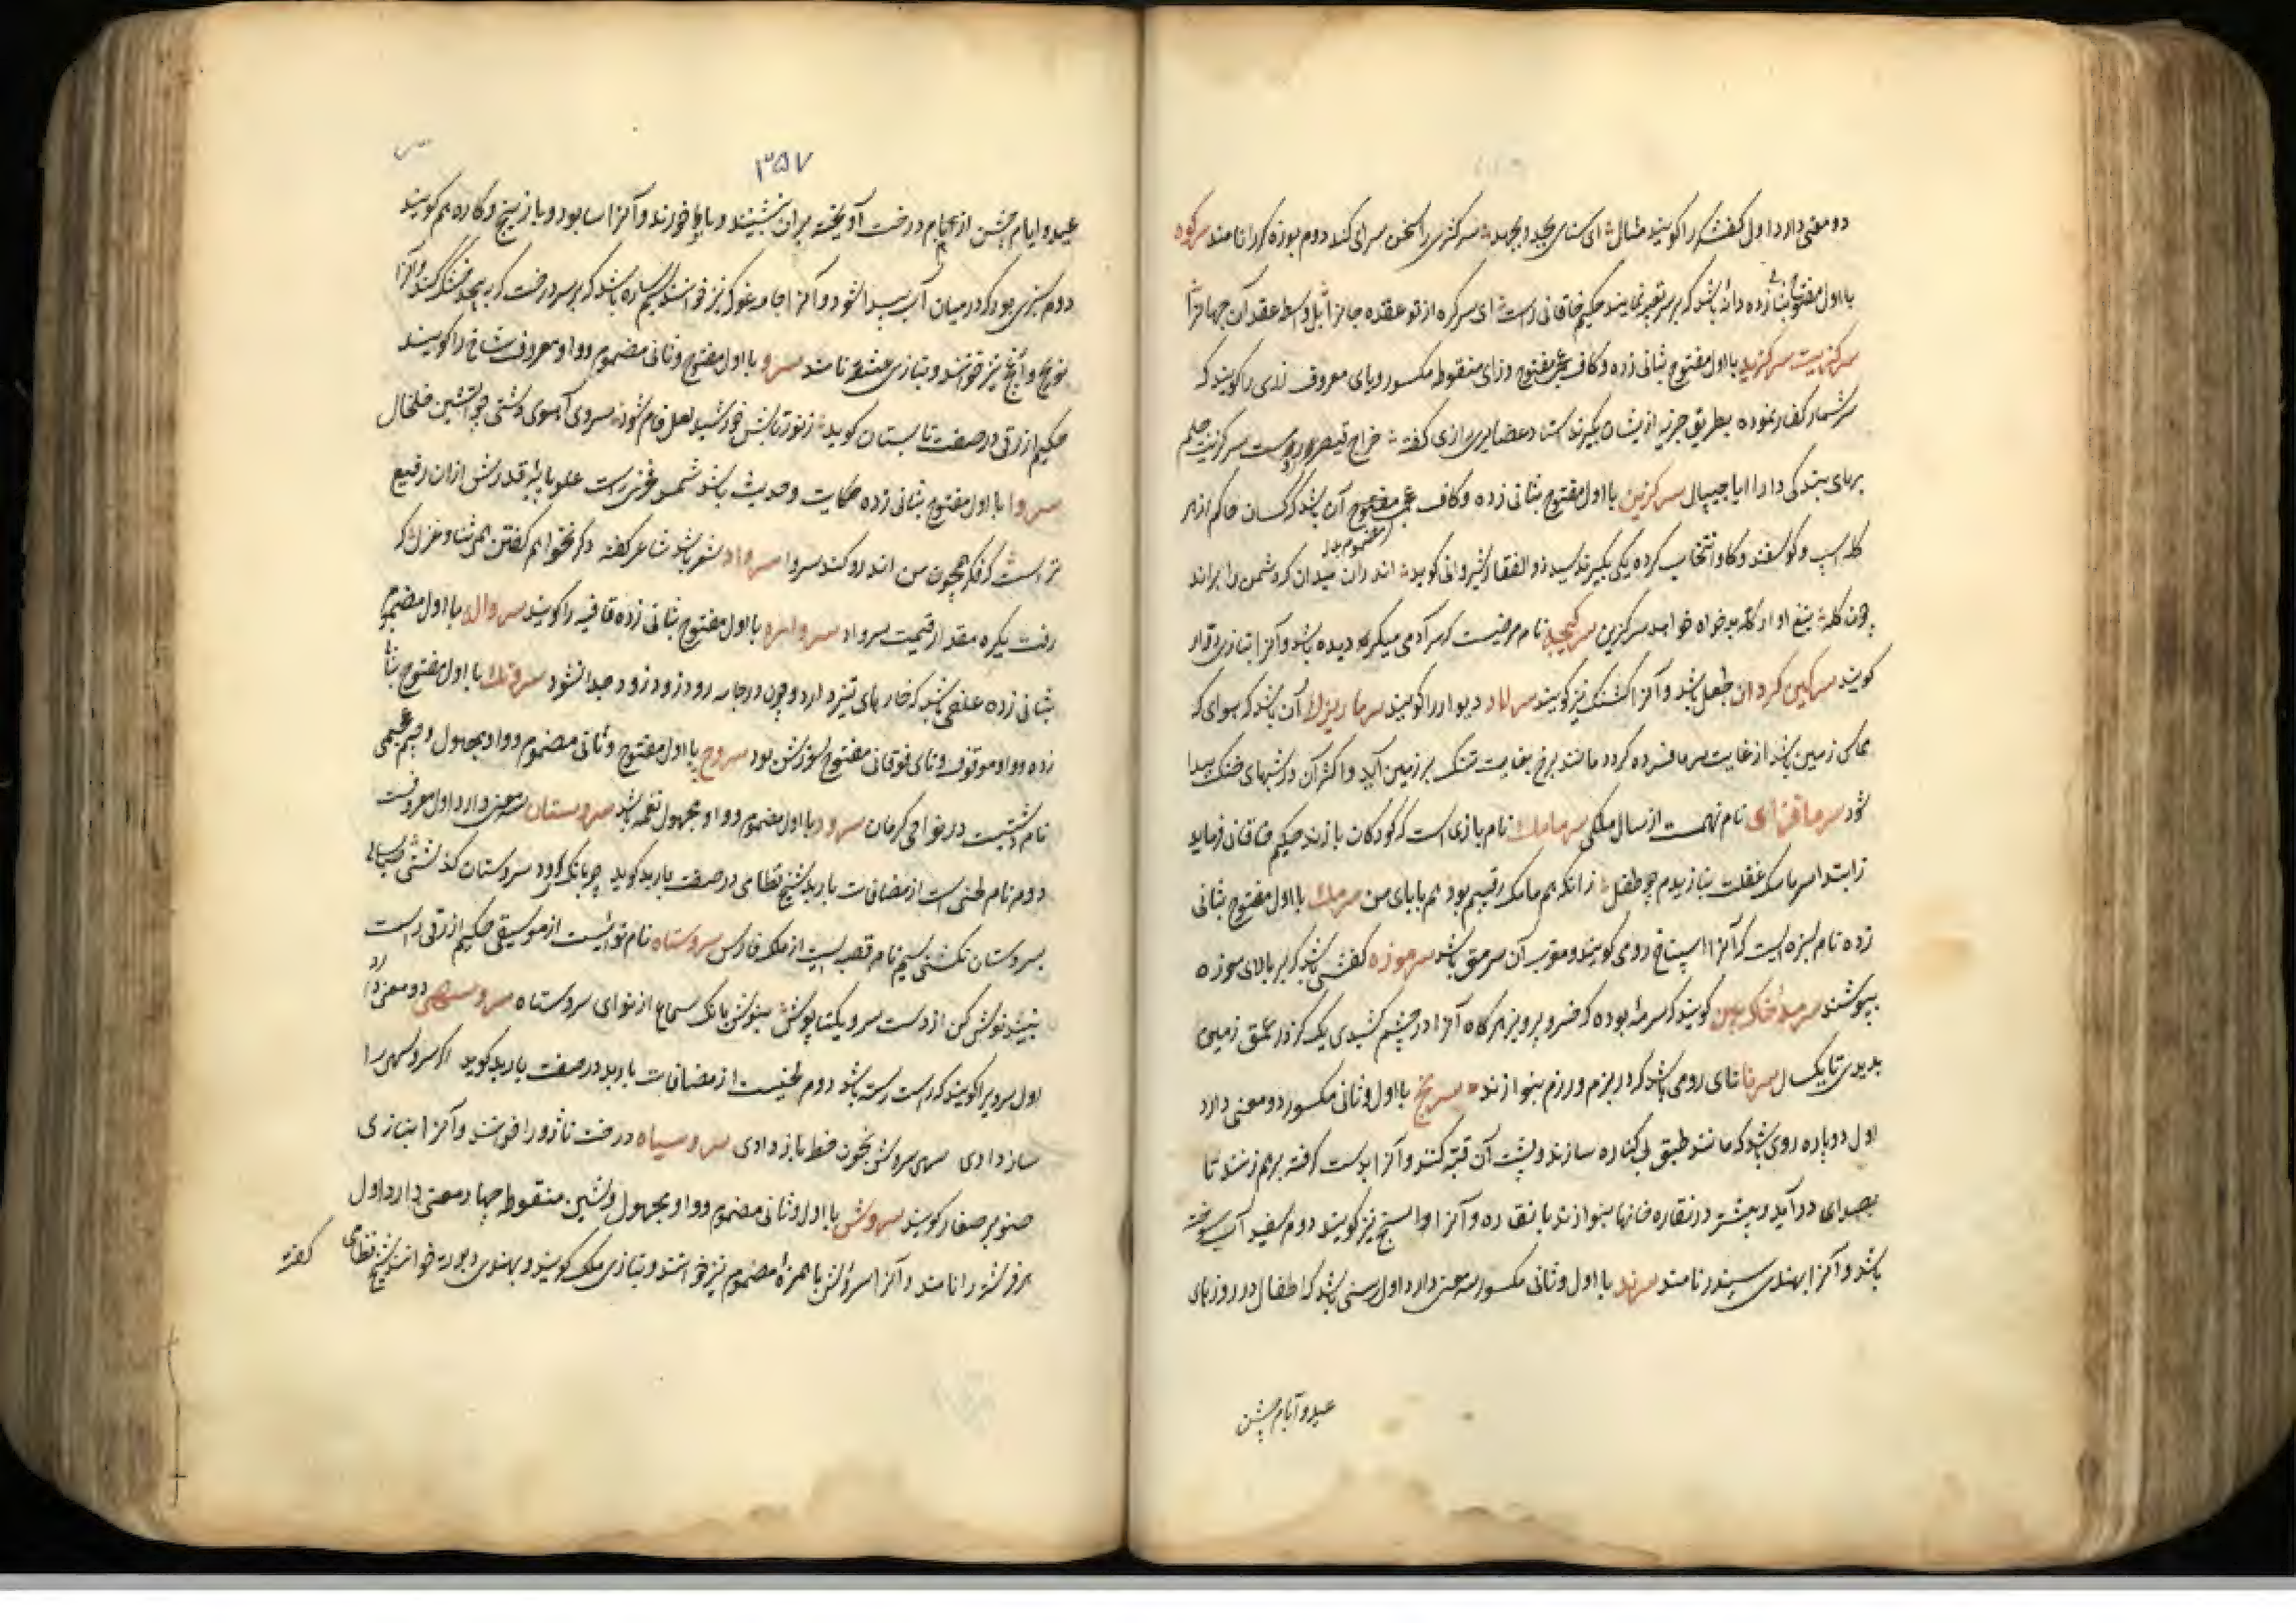 دو معنی دارد اول کفشگر را گویند مثال ای سنایی بجد و بجهد سرگر سر را سخن سرای کند دوم بوزه گر را نامند سرگره
با اول مفتوح بثانی زده دانه باشد که بر سر تعبیه نمایند حکیم خاقانی راست ای سرگره از تو عقده جانرا بل واسطه عقد آن جهانرا
سرگزیت سرگزید با اول مفتوح بثانی زده و کاف عجمی مفتوح وزای منقوطه مکسور و یای معروف زری را گویند که
سر شمار کفار نموده بطریق جزیه از یشان بگیرند استاد عضایری رازی گفته خراج قیصر روم است سرگزیت
بهای بندگی دارا ایا جیپال سرگزین با اول مفتوح بثانی زده و کاف عجمی مضموم آن باشد که کسان حاکم از هر
گله اسپ و گوسفند و گاو انتخاب کرده یکی بگیرند سید ذوالفقار شیروانی گوید اندران میدان که دشمن را براند
همرون گله تیغ او از گله بدخواه خواهد سرگزین سرگیجه نام مرضیست که سر آدمی میگردد دیده باشد و آنرا بتازی دوار
گویند سرگین گردان جعل باشد و آنرا گشتک نیز گویند سرلاد دیوار را گویند سرما ریزک آن باشد که هوای که
محاکی زمین باشد از غایت سرما فسرده گردد مانند برف بغایت تنک بر زمین آید و اکثر آن در شبهای خنک پیدا
شود سرما فزای نام نهمست از سال ملکی سرمامک نام بازی است که کودکان بازند حکیم خاقانی فرماید
ز ابتدا سرمامک غفلت نبازیدم چو طفل زانکه هم مامک رقیبم بود هم بابای من سرمک با اول مفتوح بثانی
زده نام سبزه ایست که آنرا اسپناخ رومی گویند و معرب آن سرمق باشد سرموزه کفشی باشد که بر بالای موزه
بپوشند سرمه خاک بین گویند که سرمه بوده که خسرو پرویز هرگاه آنرا در چشم کشیدی یک گز در عمق زمین
بدیدی تا یک سال سرنا نای رومی باشد که در بزم و رزم بنوازند سرنج با اول و ثانی مکسور دو معنی دارد
اول دو پاره روی باشد که مانند طبق بی کناره سازند و پشت آن قبه کنند و آنرا بدست گرفته برهم زنند تا
بصدای در آید و بیشتر در نقاره خانها بنوازند با نقاره و آنرا سنج نیز گویند دوم سفید آب سوخته
باشد و آنرا بهندی سیندر نامند سرند با اول و ثانی مکسور سه معنی دارد اول رسنی باشد که اطفال در روزهای
عید و ایام جشن
۳۵۷
عید و ایام جشن از بام و درخت آویخته بران نشینند و بباد خورند و آنرا سابود و باز پیچ و کاره هم گویند
دوم سبزی بود که در میان آب پیدا شود و آنرا جامه غوک نیز خوانند سیم لبلاب باشد که بر سر درخت که بپیچد خشک کند و آنرا
نویچ و آنج نیز خوانند و بتازی عشقه نامند سرو با اول مفتوح و ثانی مضموم و واو معروف شاخ را گویند
حکیم ازرقی در صفت تابستان گوید ز نور تابش خورشید لعل فام شود سروی آهوی دشتی چو آتشین خلخال
سروا با اول مفتوح بثانی زده حکایت و حدیث باشد شمس فخری راست علو پایه قدرش ازان رفیع
تر است که فکر همچون من اندرو کند سروا سرواد شعر باشد شاعر گفته دگر نخواهم گفتن همی ثنا و غزل که
رفت یکره مقدار قیمت سرواد سرواده با اول مفتوح بثانی زده قافیه را گویند سرواله با اول مضموم
بثانی زده علفی باشد که خارهای تیز دارد و چون در جامه رود زود زود جدا نشود سروتک با اول مفتوح بثانی
زده و واو موقوف و تای فوقانی مفتوح لوزش بود سروج با اول مفتوح و ثانی مضموم و واو مجهول و جیم عجمی
نام دشتیست در نواحی کرمان سرود با اول مضموم و واو مجهول نغمه باشد سروستان سه معنی دارد اول معروفست
دوم نام لحنی است از مصنفات باربد شیخ نظامی در صفت باربد گوید چو بانگ سرود سروستان گذشتی صبا سالی
بسروستان نگشتی سیم نام قصبه ایست از ملک فارس سروستاه نام نوائیست از موسیقی حکیم ازرقی راست
نبید نوش کن از دست سرو یکتا پوش بنوش بانگ سماع از نوای سروستاه سرو سهی دو معنی دارد
اول سرویرا گویند که راست رسته باشد دوم لحنیست از مصنفات باربد در صفت باربد گوید اگر سرو سهی را
ساز دادی سهی سروش بخون خط باز دادی سرو سیاه درخت ناژو را خوانند و آنرا بتازی
صنوبر صغار گویند سروش با اول و ثانی مضموم و واو مجهول و شین منقوطه چهار معنی دارد اول
هر فرشته را نامند و آنرا سرؤش با همزه مضموم نیز خوانند و بتازی ملک گویند و بهندی دیوته خوانند شیخ نظامی
گفته